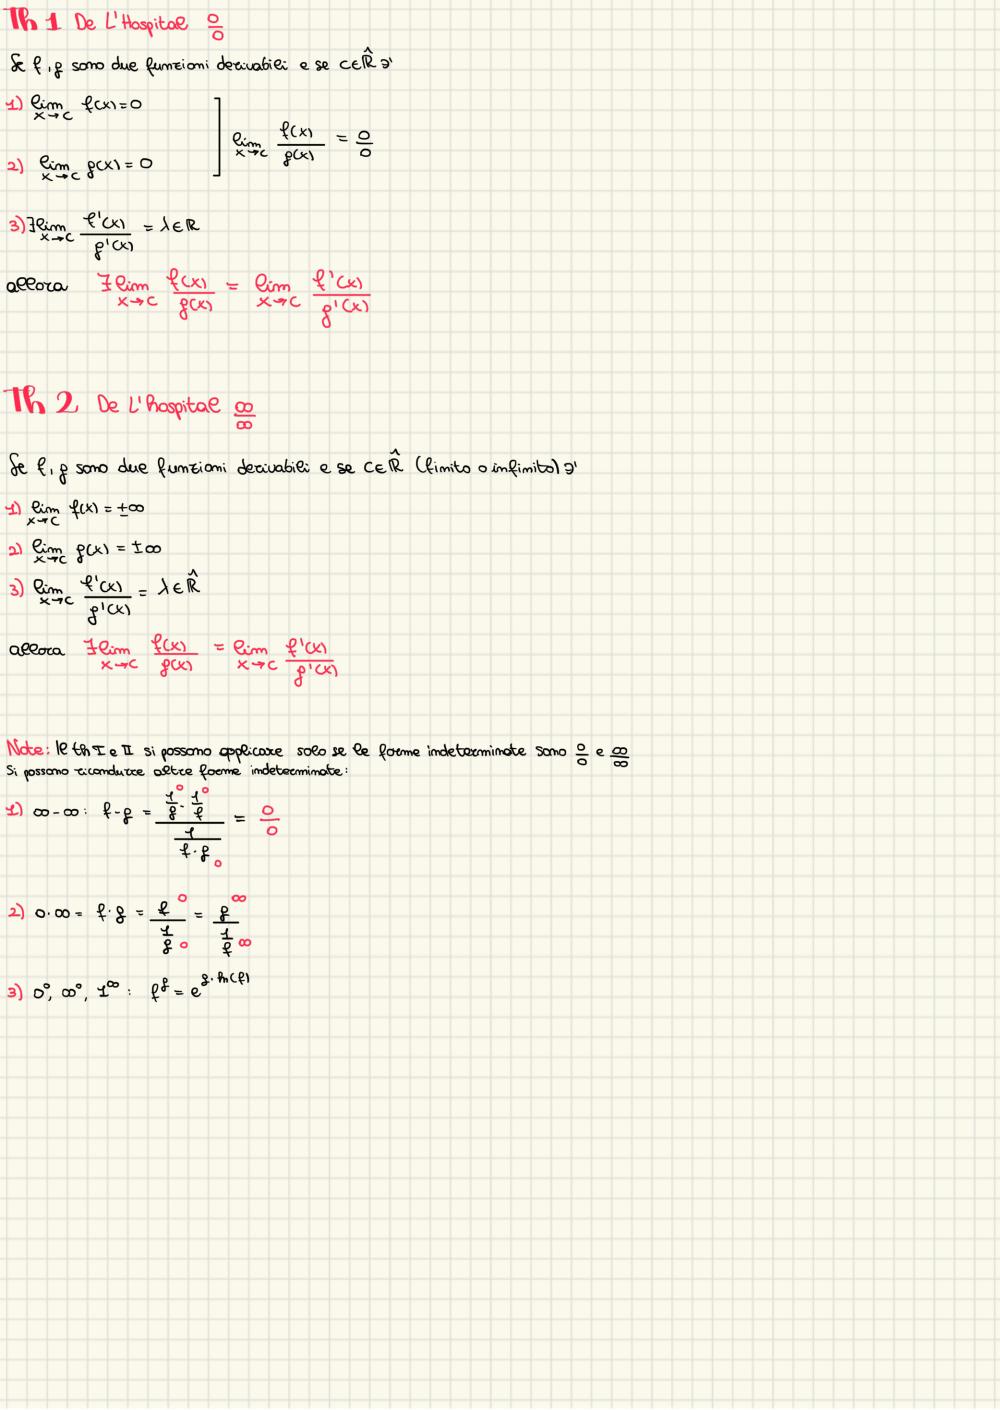 Th 1 De L'Hospital 0/0
Se f, g sono due funzioni derivabili e se c∈R̂ ∋'
1) lim x→c f(x)=0
2) lim x→c g(x)=0
] lim x→c f(x)/g(x) = 0/0
3) ∃lim x→c f'(x)/g'(x) = λ∈R
allora ∃lim x→c f(x)/g(x) = lim x→c f'(x)/g'(x)
Th 2 De L'hospital ∞/∞
Se f, g sono due funzioni derivabili e se c∈R̂ (finito o infinito) ∋'
1) lim x→c f(x) = ±∞
2) lim x→c g(x) = ±∞
3) lim x→c f'(x)/g'(x) = λ∈R̂
allora ∃lim x→c f(x)/g(x) = lim x→c f'(x)/g'(x)
Note: le th I e II si possono applicare solo se le forme indeterminate sono 0/0 e ∞/∞
Si possono ricondurre altre forme indeterminate:
1) ∞-∞: f-g = (1/g⁰ · 1/f⁰)/(1/(f·g) ⁰) = 0/0
2) 0·∞ = f·g = f⁰/(1/g ⁰) = g^∞/(1/f ^∞)
3) 0⁰, ∞⁰, 1^∞ : f^g = e^(g·ln(f))